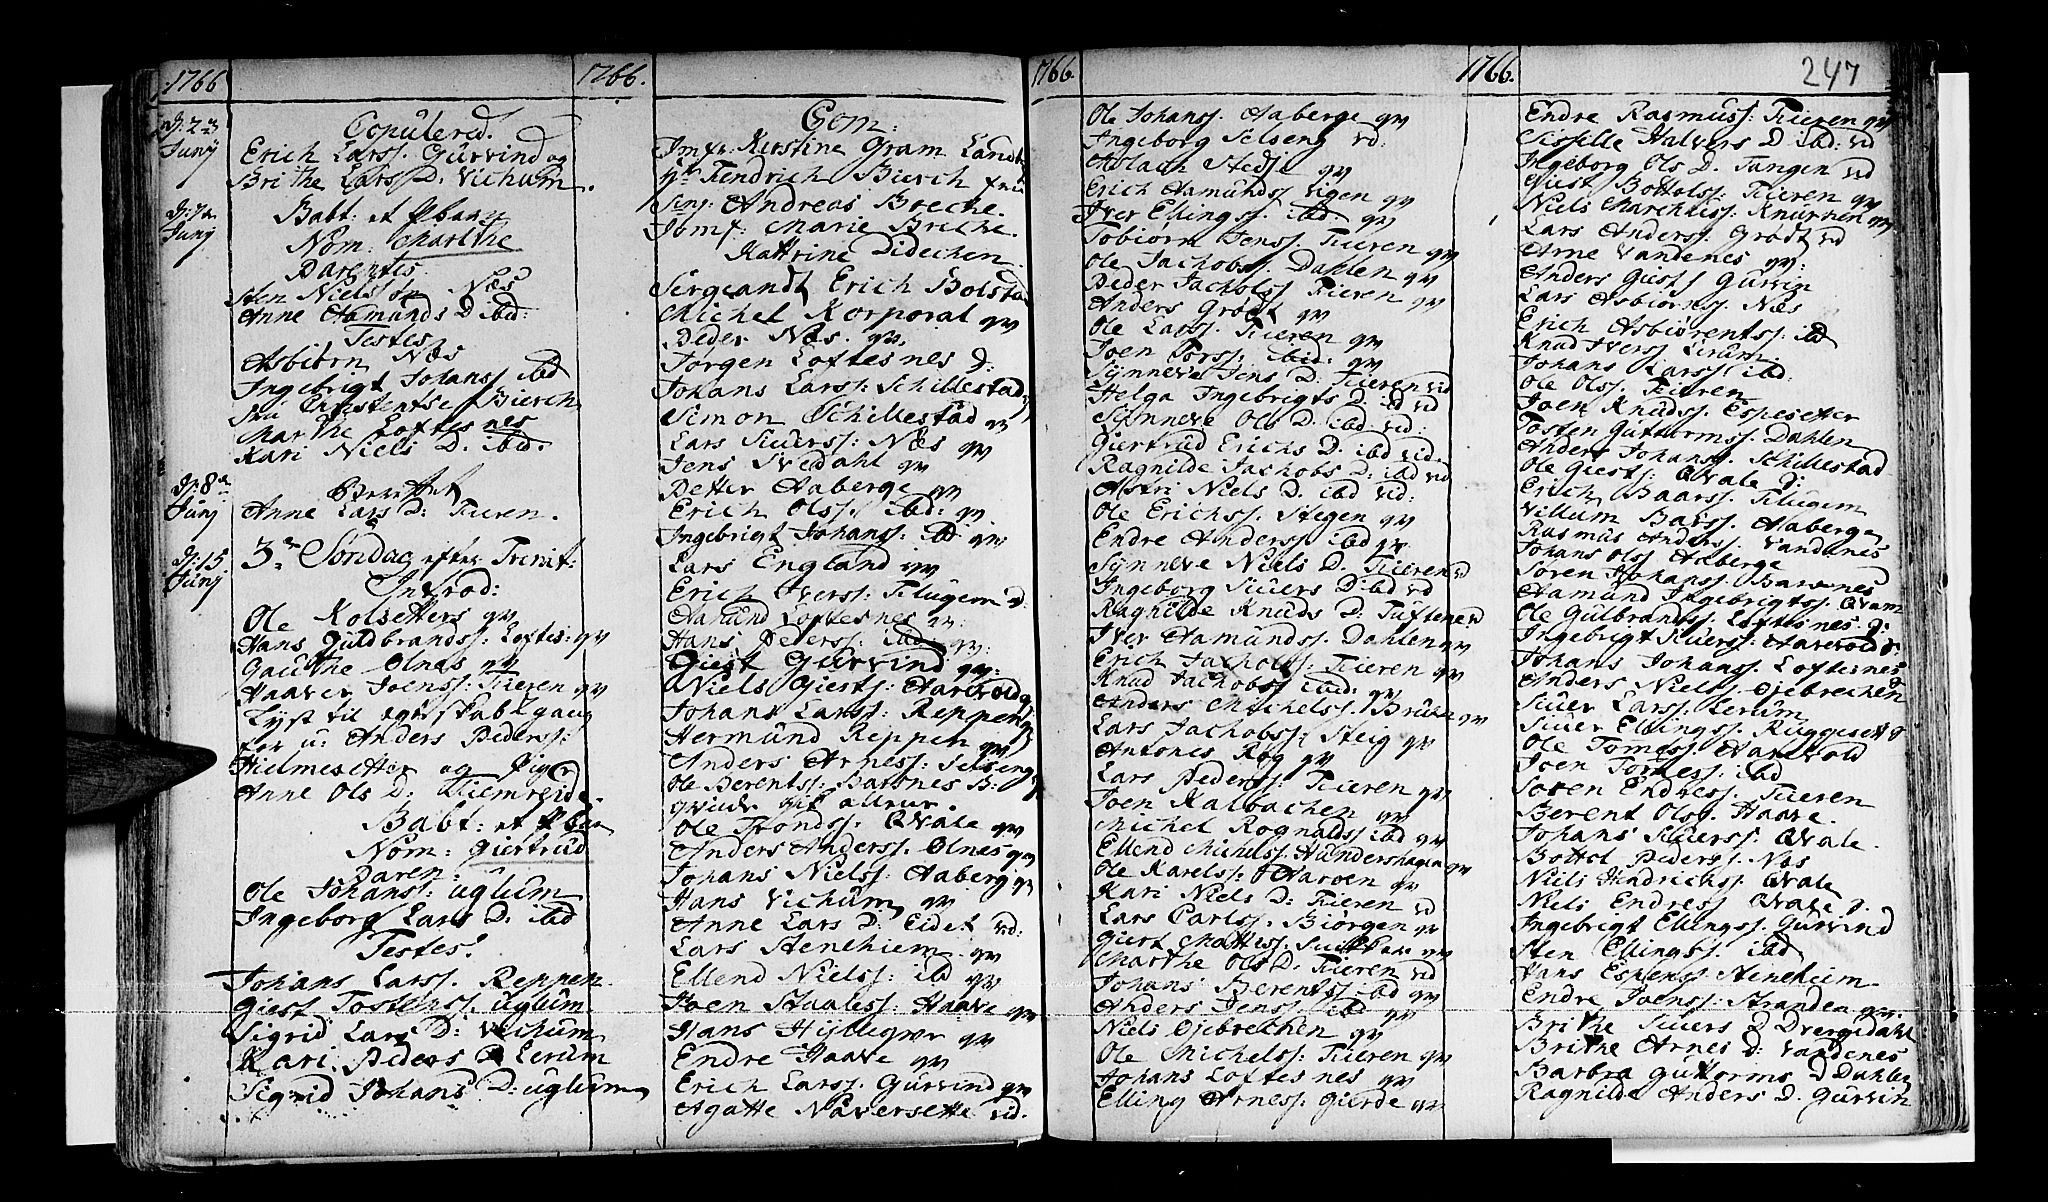 1766
1766.
1766.
1766.
247
d: 23
Junÿ
Copulered.
Erich Larss. Gurvind og
Brithe Lars D. Vichum.
d: 7a
Junj
Babt: et
Nom: Marthe
Parentes
Sten Niels Næs
Anne Aamunds D ibid:
Testes
Asbiörn Næs
Ingebrigt Johanss ibid
Bierch
Marthe Loftesnes
Kari Niels D. ibid.
d: 8a
Junj
Anne Lars D: Tieren.
d: 15.
Junj
3 Söndag efter Trenit:
Introd:
Ole Kolsetters qv
Hans Guldbrandss: Loftes: qv
Gauthe Olnas qv
Haaver Joenss: Tieren qv
Lyst til Egteskab 1 gang
for u: Anders Pederss:
Hielmesetter og Piger
Anne Ols D:
Babt: et
Nom: Gurtrud
Paren:
Ole Johans: uglum
Ingeborg Lars D: ibid
Testes:
Johans Larss. Reppen
Giest Tostenss. uglum
Sigrid Lars D: Vichum
Kari Peders D Lerum
Sigrid Johans D: uglum
Com:
Jmfr: Kerstine Gram Landt
Hr. Hendrich Bierch
Sinj: Andreas Breche.
Jomf: Marie Breche.
Kattrine Didechen
Sergeandt Erich Bolstad
Michel Korporal qv
Peder Næs. qv.
Jørgen Loftesnes D:
Johans Larss: Schillestad
Simon Schillestad qv
Lars Siuerss: Næs qv
Jens Svedahl qv
Petter Aaberge qv
Erich Olss. ibid: qv
Ingebrigt Johanss. ibid qv
Lars England qv
Erich Iverss: Flugem D:
Aamund Loftesnes qv:
Hans Pederss: ibid: qv:
Giest Gurvind qv:
Niels Gierts: Aarevold
Johans Larss: Reppen
Hermund Reppen qv
Anders Arness: Selseng
Ole Berentss: Barsnes B:
Ole Tronds: Qvale qv
Anders Anderss. Olnes qv
Johans Nielss: Aaberg qv
Hans Vichum qv
Anne Lars D: Eidet vd:
Lars Stenehiem. qv
Ellend Nielss: ibid qv
Joen Haaless: Haave qv
Hans Hyllegier qv
Endre Haave qv
Erich Larss. Gurvind qv
Agatte Naversette vd.
Ole Johanss. Aaberge qv
Ingeborg Selseng vd:
Aslach Stedje qv
Erich Aamunds Eigen qv
Iver Ellingss. ibid. qv
Tobiørn Jenss. Tieren qv
Ole Jachobss. Dahlen qv
Peder Jacholss Tieren qv
Anders Grødt qv
Ole Larss. Tieren qv
Joen Torss: ibid: qv
Synneva Jens D: Tieren vd
Helga Ingebrigts D ibid vd
Synneve Ols D. ibid vd:
Giertrud Erichs D. ibid vd.
Ragnilde Jachobs D: ibid vd
Astri Niels D. ibid vd:
Ole Erichss: Stegen qv
Endre Anderss ibid qv
Synneve Niels D. Tieren vd
Ingeborg Siuers D ibid vd
Ragnilde Knuds D: Tuftene vd
Iver Aamundss. Dahlen qv
Erich Jacholss: Tieren qv
Knud Jachobss ibid: qv
Anders Michelss: Bruhn qv
Lars Jachobss: Steig qv
Antones Røg qv
Lars Pederss: Tieren qv
Joen Kalbachen qv
Michel Rognalds ibid qv
Ellend Michelss. Hundershagen qv
Ole Karelss: Harøen qv
Kari Niels D: Tieren vd
Lars Carlss. Biørgen qv
Giert Mattess: qv
Marthe Ols D: Tieren vd
Johans Berentss ibid qv
Anders Jenss: ibid qv
Niels Ojebrechen qv
Ole Michelss: Tieren qv
Johans Loftesnes qv
Elling Arness: Gierde qv
Endre Rasmuss: Tieren qv
Sissille Halvers D ibid: vd
Ingeborg Ols D. Tangen vd
Giest Bottolss: Tieren qv
Niels Marchuss. Knurren qv
Lars Anderss: Grødt vd
Arne Vandenes qv:
Anders Giests Gurvin
Lars Asbiørnss. Næs
Erich Asbiørentss: ibid
Knud Iverss Lerum
Johans Larss ibid:
Ole Olss: Tieren
Joen Knudss. Espesetter
Tosten Guttormss. Dahlen
Anders Johanss Schillestad
Ole Giest: Qvale D:
Erich Baarss: Flugem
Villum Barss. Aaberge
Rasmus Anders Vandenes
Johans Olss Aaberge
Søren Johanss Barsnes
Aamund Ingebrigtss. Qvam
Ole Gulbrands Loftesnes D:
Ingebrigt Siuerss: Aarevold
Johans Johanss Loftesnes
Anders Nielss Ojebrechen
Siuer Larss: Lerum
Siuer Ellingss. Ruggesett
Ole Tomess: Aarevold
Joen Tomess: ibid
Soren Endress: Tieren
Berent Olss. Haave.
Johans Siuerss: Qvale.
Bottol Pederss. Næs
Niels Hendrichss: Qvale
Niels Endress Qvale
Ingebrigt Ellingss. Gurvind
Sten Ellingss. ibid
Hans Espenss. Stenehiem
Endre Joenss: Stranden qv.
Brithe Siuers D Dvergedahl
Brithe Arnes D: Vandenes
Barbra Guttorms D Dahlen
Ragnilde Anders D. Gurvin